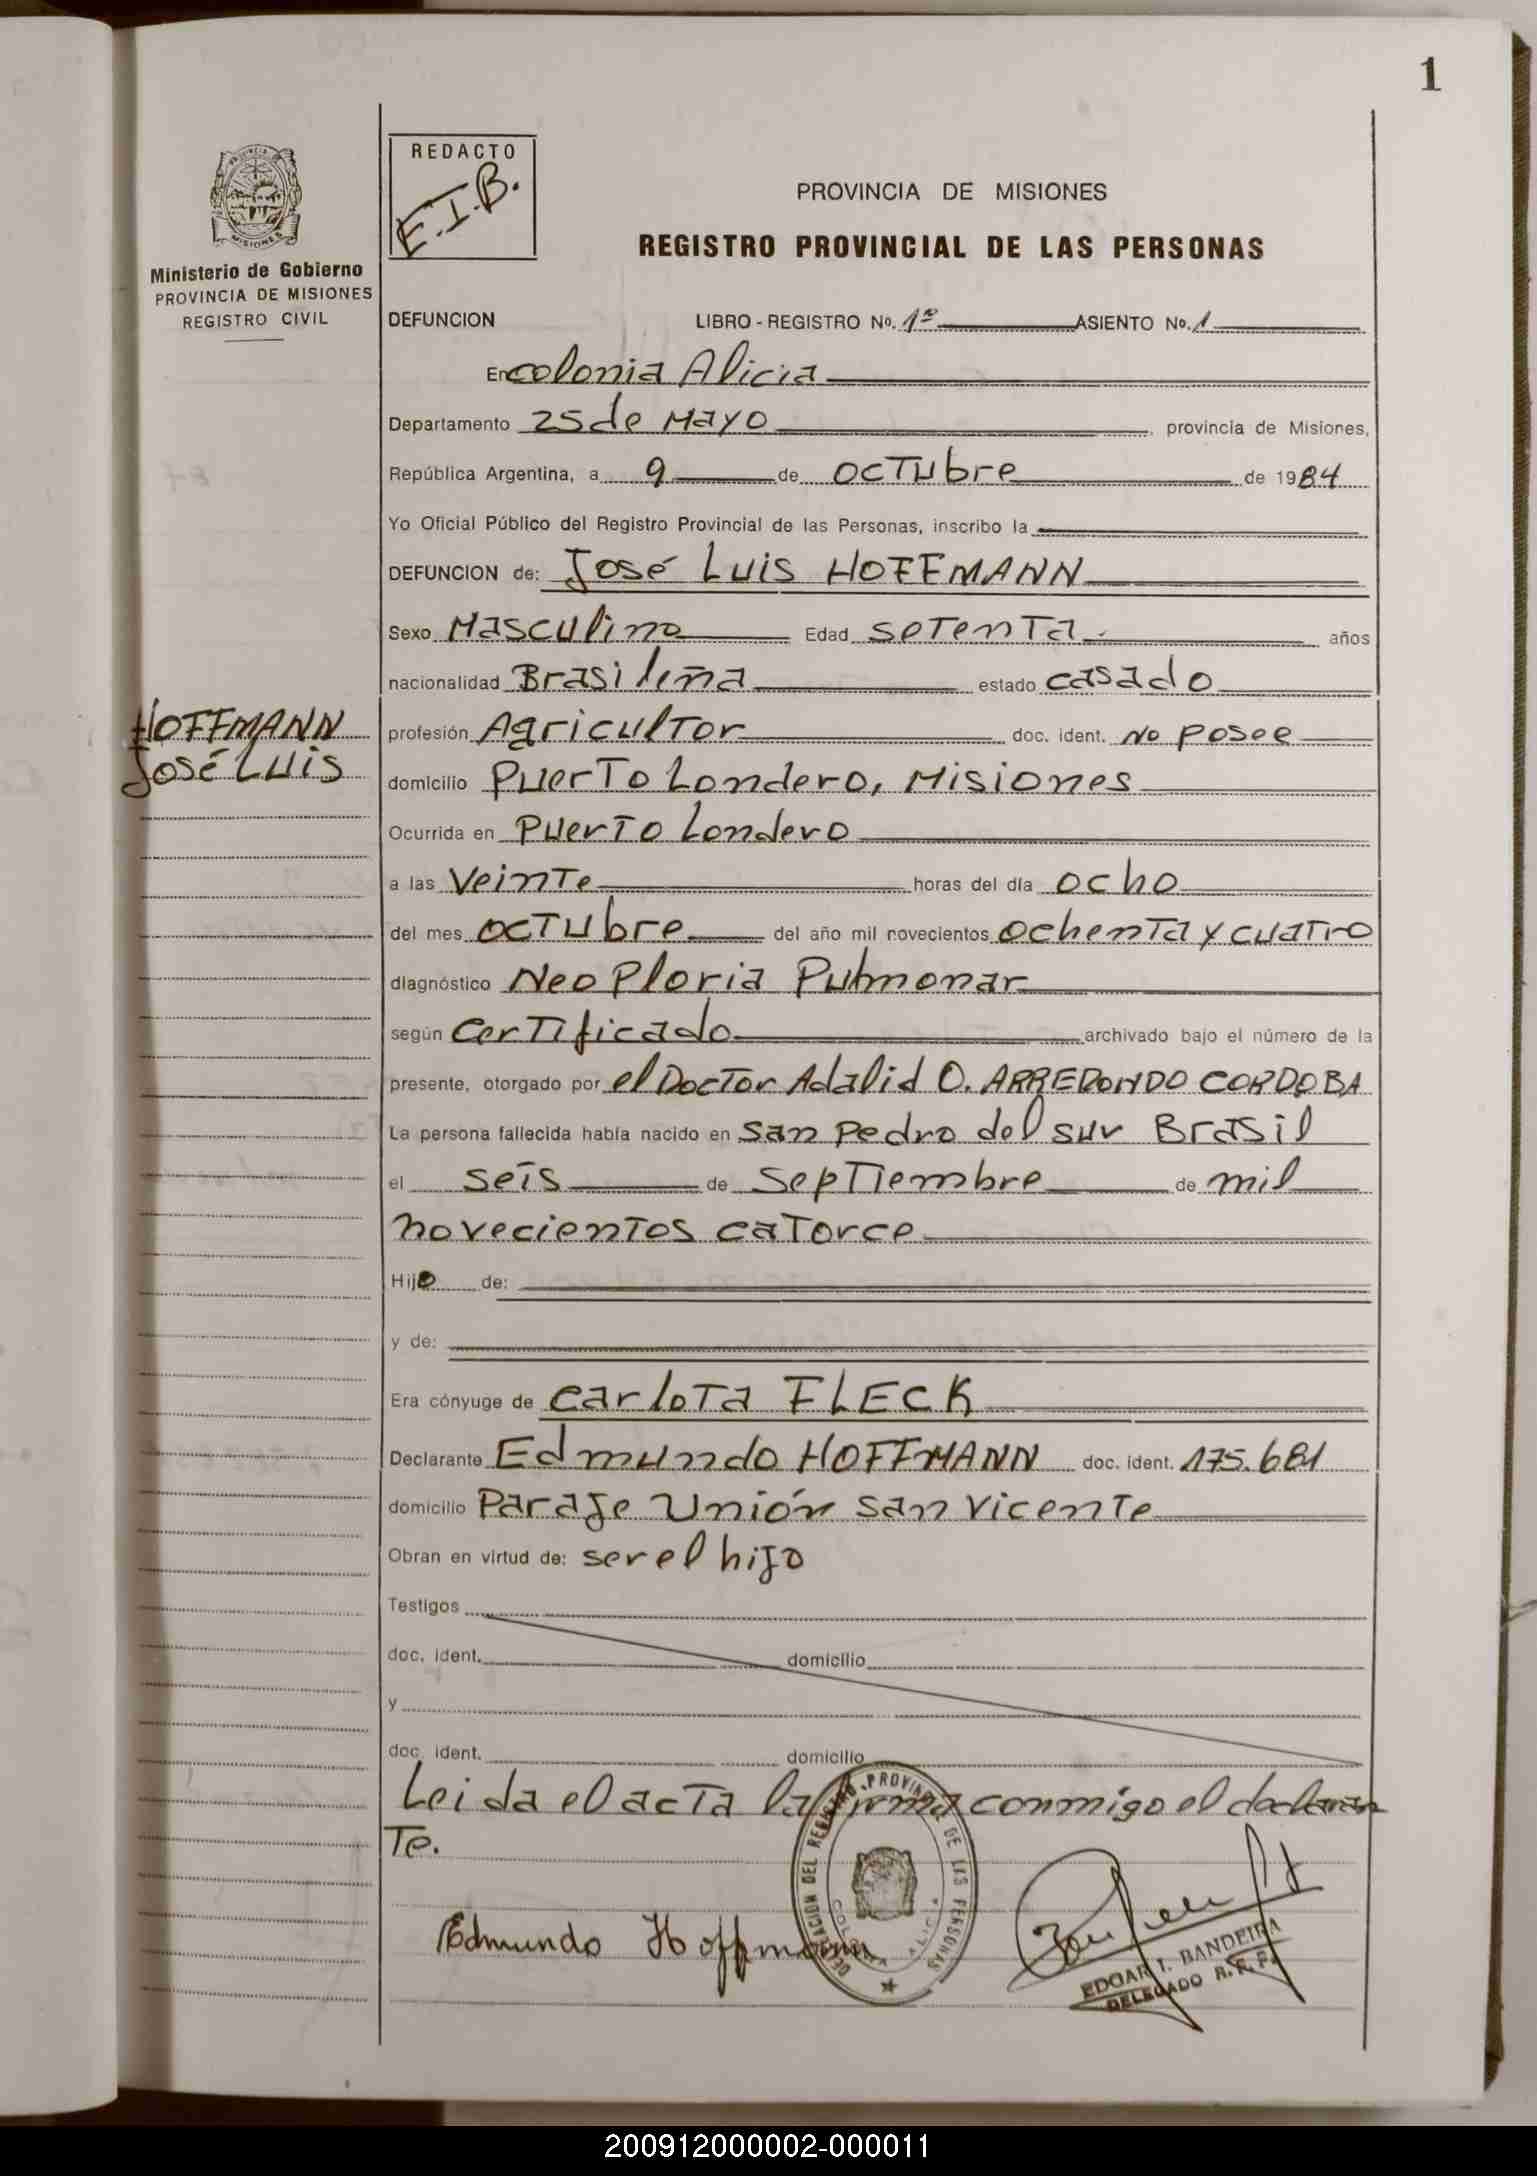 1
REDACTO
E.I.B.
PROVINCIA DE MISIONES
REGISTRO PROVINCIAL DE LAS PERSONAS
MISIONES
Ministerio de Gobierno
PROVINCIA DE MISIONES
REGISTRO CIVIL
DEFUNCION LIBRO - REGISTRO No. 1º ASIENTO No. 1
En colonia Alicia
Departamento 25 de Mayo, provincia de Misiones,
República Argentina, a 9 de octubre de 1984
Yo Oficial Público del Registro Provincial de las Personas, inscribo la
DEFUNCION de: José Luis HOFFMANN
Sexo Masculino Edad setenta años
nacionalidad Brasileña estado casado
HOFFMANN
José Luis
profesión Agricultor doc. ident. No posee
domicilio Puerto Londero, Misiones
Ocurrida en Puerto Londero
a las veinte horas del día ocho
del mes octubre del año mil novecientos ochenta y cuatro
diagnóstico Neo Ploria Pulmonar
según certificado archivado bajo el número de la
presente, otorgado por el Doctor Adalid O. ARREDONDO CORDOBA
La persona fallecida había nacido en San Pedro del sur Brasil
el seis de septiembre de mil
novecientos catorce
Hijo de:
y de:
Era cónyuge de Carlota FLECK
Declarante Edmundo HOFFMANN doc. ident. 175.681
domicilio Paraje Unión San Vicente
Obran en virtud de: ser el hijo
Testigos
doc. ident. domicilio
y
doc. ident. domicilio
Leida el acta la firma conmigo el declaran
te.
DELEGACION DEL REGISTRO PROVINCIAL DE LAS PERSONAS
COLONIA ALICIA
Edmundo Hoffmann
EDGAR I. BANDEIRA
DELEGADO R.P.P.
200912000002-000011